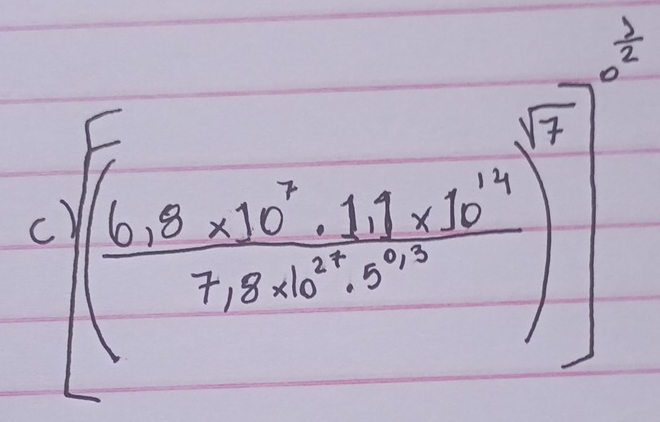 c) [((6,8 × 10⁷ . 1,1 × 10¹⁴) / (7,8 × 10²⁷ . 5^0,3))^√7]^0^